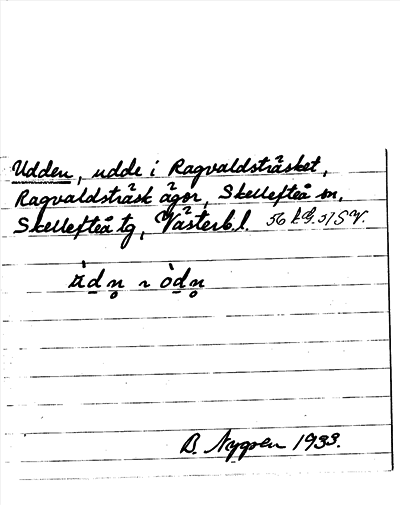 Udden, udde i Ragvaldsträsket,
Ragvaldsträsk ägor, Skellefteå sn,
Skellefteå tg, Västerb. l.
B. Nygren 1933.